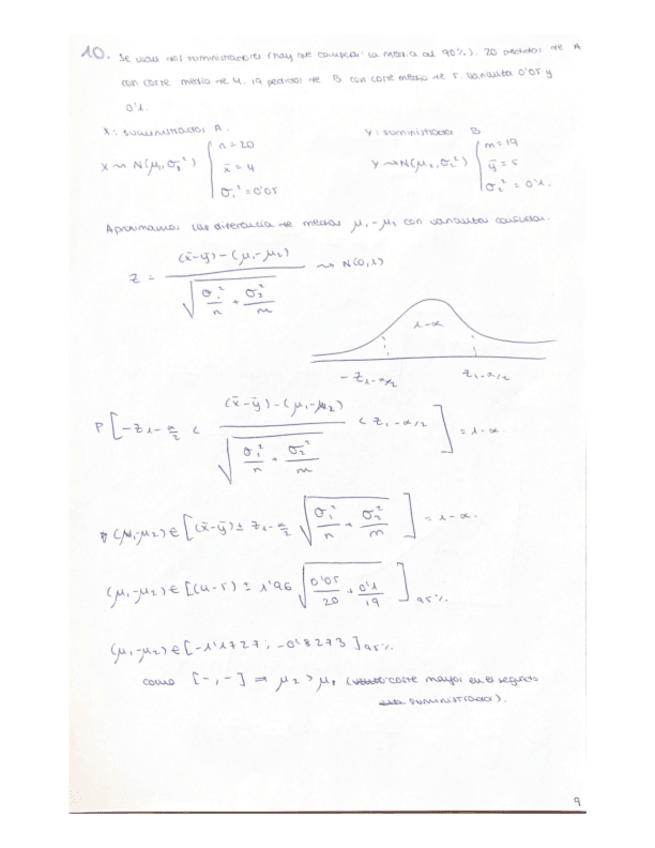 10. Se usan dos suministradores (hay que comparar la media al 90%). 20 pedidos de A
con coste medio de 4. 19 pedidos de B con coste medio de 5. Varianza 0'05 y
0'1.
X: suministrador A. Y: suministrador B
X ~ N(μ₁, σ₁²) { n = 20 Y ~ N(μ₂, σ₂²) { m = 19
x̄ = 4 ȳ = 5
σ₁² = 0'05 σ₂² = 0'1.
Aproximamos las diferencia de medias μ₁ - μ₂ con varianzas conocidas.
Z = ((x̄-ȳ) - (μ₁-μ₂)) / √(σ₁²/n + σ₂²/m) ~ N(0,1)
1-α
-Z₁₋α/₂ Z₁₋α/₂
P[-Z₁₋α/₂ < ((x̄-ȳ) - (μ₁-μ₂)) / √(σ₁²/n + σ₂²/m) < Z₁₋α/₂] = 1-α.
(μ₁-μ₂) ∈ [(x̄-ȳ) ± Z₁₋α/₂ √(σ₁²/n + σ₂²/m)] = 1-α.
(μ₁-μ₂) ∈ [(4-5) ± 1'96 √(0'05/20 + 0'1/19)]95%.
(μ₁-μ₂) ∈ [-1'1727; -0'8273]95%.
como [-,-] ⇒ μ₂ > μ₁ (coste mayor en el segundo
suministrador).
9